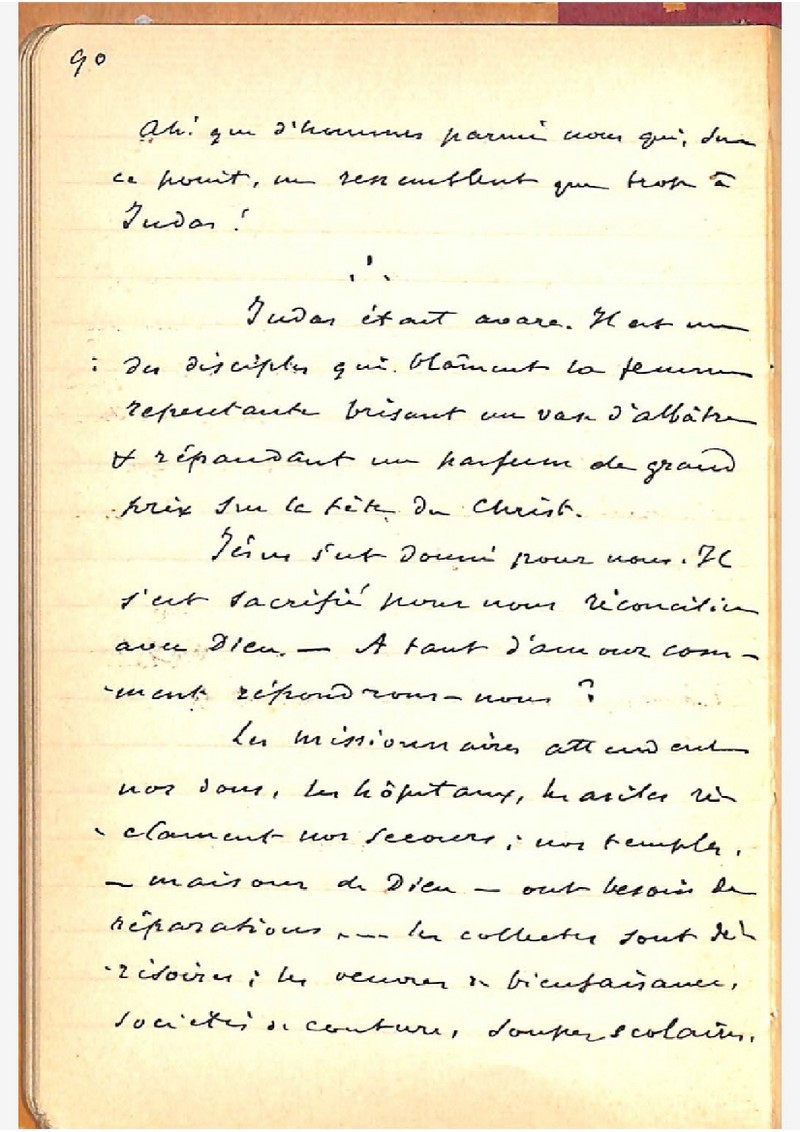 90
Ah! que d'hommes parmi nous qui, sur
ce point, ne ressemblent que trop à
Judas!
Judas était avare. Il est un
des disciples qui blâment la femme
repentante brisant un vase d'albâtre
& répandant un parfum de grand
prix sur la tête du Christ.
Jésus s'est donné pour nous. Il
s'est sacrifié pour nous réconcilier
avec Dieu. — A tant d'amour com-
-ment répondrons-nous?
Les missionnaires attendent
nos dons, les hôpitaux, les asiles ré-
clament nos secours; nos temples,
— maisons de Dieu — ont besoin de
réparations ... les collectes sont dé-
-risoires; les oeuvres de bienfaisance,
sociétés de couture, soupes scolaires,